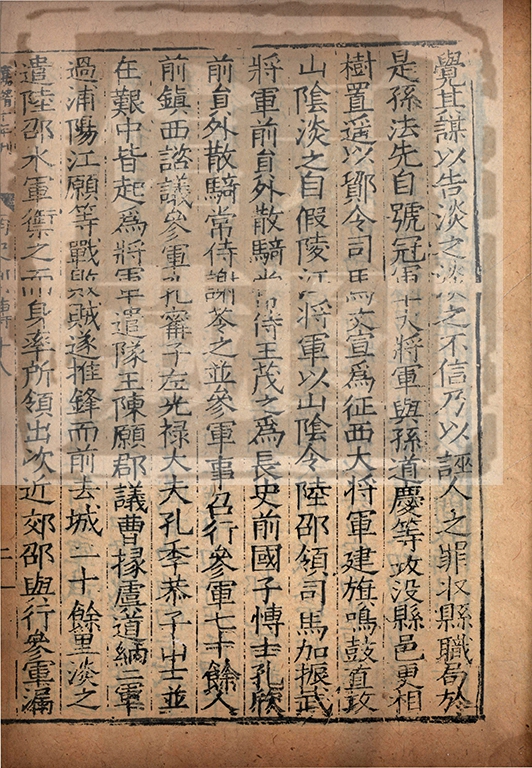 覺其謀以告淡之淡之不信乃以誣人之罪收縣職局於
是孫法先自號冠軍大將軍與孫道慶等攻没縣邑更相
樹置遥以鄮令司馬文宣爲征西大將軍建旗鳴鼓直攻
山隂淡之自假陵江將軍以山隂令陸邵領司馬加振武
將軍前員外散騎常侍王茂之爲長史前國子博士孔欣
前員外散騎常侍謝苓之並參軍事召行參軍七十餘人
前鎮西諮議參軍孔甯子左光禄大夫孔季恭子山士並
在艱中皆起爲將軍遣隊主陳願郡議曹掾虞道納二軍
過浦陽江願等戰敗賊遂摧鋒而前去城二十餘里淡之
遣陸邵水軍禦之而身率所領出次近郊邵與行參軍漏